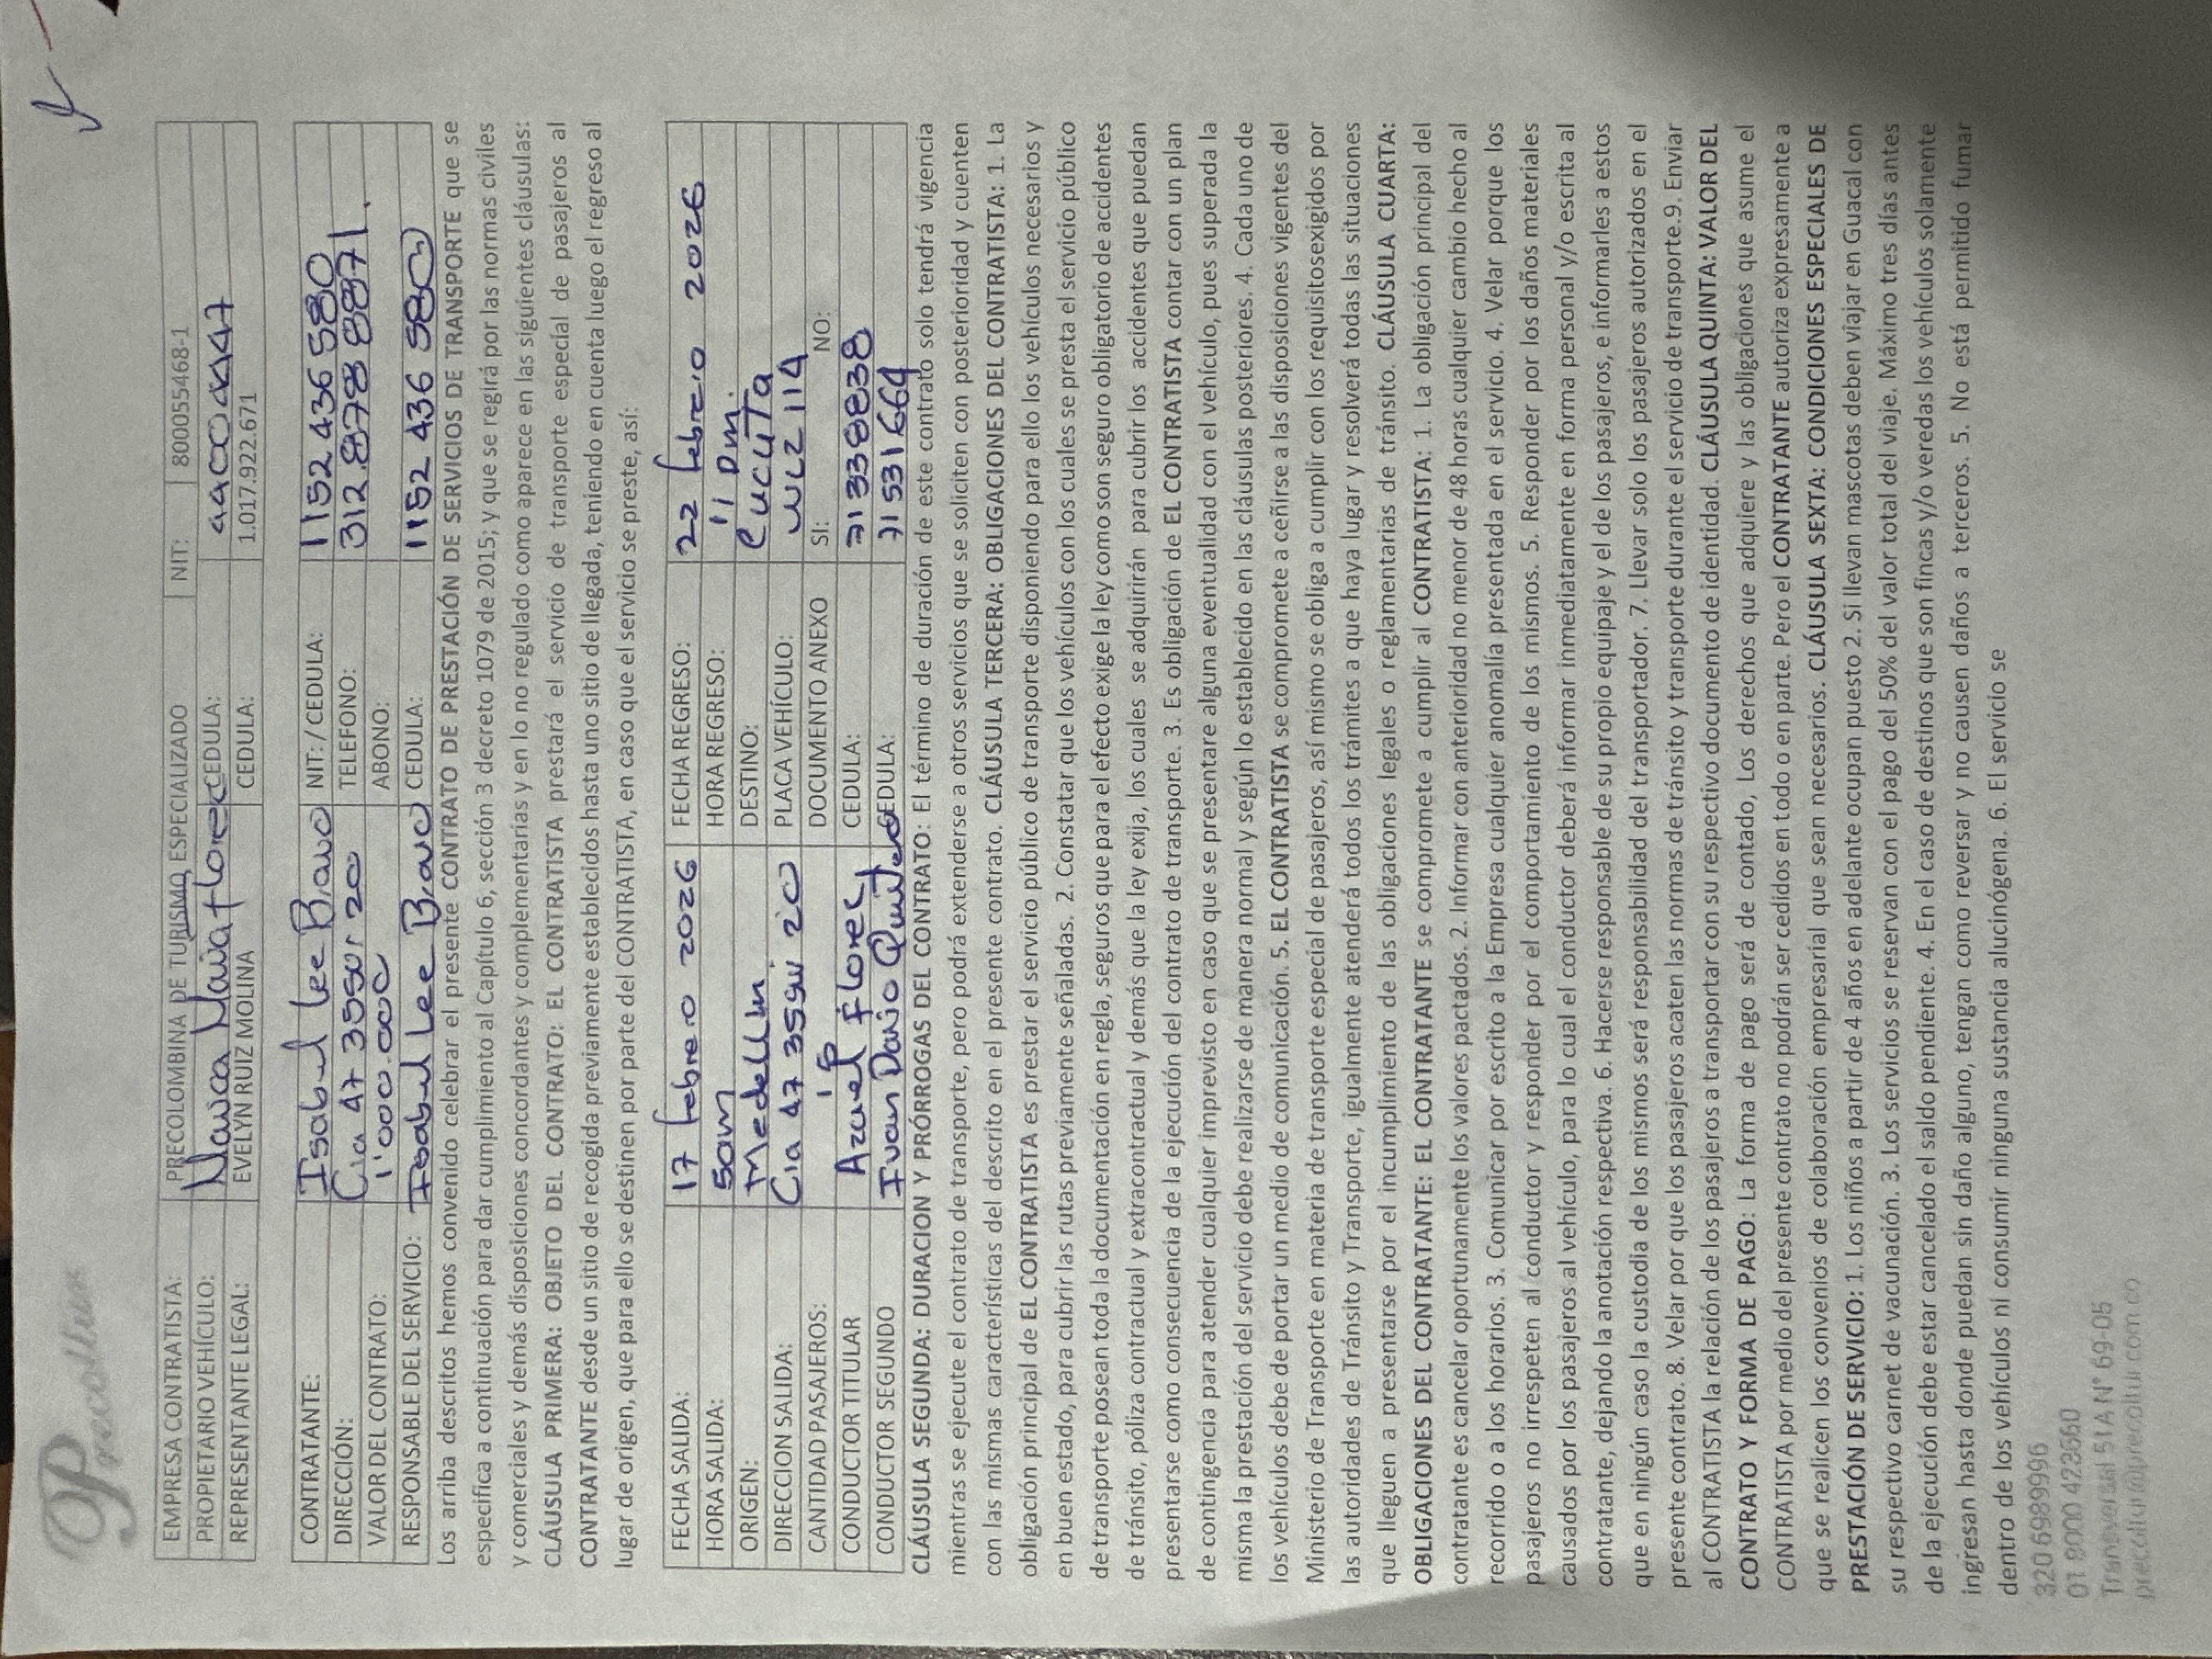 Precoltur
EMPRESA CONTRATISTA: PRECOLOMBINA DE TURISMO ESPECIALIZADO NIT: 8000055468-1
PROPIETARIO VEHÍCULO: Florez CEDULA:
REPRESENTANTE LEGAL: EVELYN RUIZ MOLINA CEDULA: 1.017.922.671
CONTRATANTE: Isabel Lee Bravo NIT: / CEDULA: 1152 436 580
DIRECCIÓN: Cra 47 35sur 20 TELEFONO: 312.878 8871.
VALOR DEL CONTRATO: 1'000.000 ABONO:
RESPONSABLE DEL SERVICIO: Isabel Lee Bravo CEDULA: 1152 436 580
Los arriba descritos hemos convenido celebrar el presente CONTRATO DE PRESTACIÓN DE SERVICIOS DE TRANSPORTE que se
especifica a continuación para dar cumplimiento al Capítulo 6, sección 3 decreto 1079 de 2015; y que se regirá por las normas civiles
y comerciales y demás disposiciones concordantes y complementarias y en lo no regulado como aparece en las siguientes cláusulas:
CLÁUSULA PRIMERA: OBJETO DEL CONTRATO: EL CONTRATISTA prestará el servicio de transporte especial de pasajeros al
CONTRATANTE desde un sitio de recogida previamente establecidos hasta uno sitio de llegada, teniendo en cuenta luego el regreso al
lugar de origen, que para ello se destinen por parte del CONTRATISTA, en caso que el servicio se preste, así:
FECHA SALIDA: 17 febrero 2026 FECHA REGRESO: 22 febrero 2026
HORA SALIDA: 5am HORA REGRESO: 11 pm.
ORIGEN: Medellin DESTINO: Cucuta
DIRECCION SALIDA: Cra 47 35sur 20 PLACA VEHÍCULO: 114
CANTIDAD PASAJEROS: DOCUMENTO ANEXO SI: NO:
CONDUCTOR TITULAR Azael Florez CEDULA: 71 338838
CONDUCTOR SEGUNDO Ivan Dario Quintero CEDULA: 71 531664
CLÁUSULA SEGUNDA: DURACION Y PRÓRROGAS DEL CONTRATO: El término de duración de este contrato solo tendrá vigencia
mientras se ejecute el contrato de transporte, pero podrá extenderse a otros servicios que se soliciten con posterioridad y cuenten
con las mismas características del descrito en el presente contrato. CLÁUSULA TERCERA: OBLIGACIONES DEL CONTRATISTA: 1. La
obligación principal de EL CONTRATISTA es prestar el servicio público de transporte disponiendo para ello los vehículos necesarios y
en buen estado, para cubrir las rutas previamente señaladas. 2. Constatar que los vehículos con los cuales se presta el servicio público
de transporte posean toda la documentación en regla, seguros que para el efecto exige la ley como son seguro obligatorio de accidentes
de tránsito, póliza contractual y extracontractual y demás que la ley exija, los cuales se adquirirán para cubrir los accidentes que puedan
presentarse como consecuencia de la ejecución del contrato de transporte. 3. Es obligación de EL CONTRATISTA contar con un plan
de contingencia para atender cualquier imprevisto en caso que se presentare alguna eventualidad con el vehículo, pues superada la
misma la prestación del servicio debe realizarse de manera normal y según lo establecido en las cláusulas posteriores. 4. Cada uno de
los vehículos debe de portar un medio de comunicación. 5. EL CONTRATISTA se compromete a ceñirse a las disposiciones vigentes del
Ministerio de Transporte en materia de transporte especial de pasajeros, así mismo se obliga a cumplir con los requisitosexigidos por
las autoridades de Tránsito y Transporte, igualmente atenderá todos los trámites a que haya lugar y resolverá todas las situaciones
que lleguen a presentarse por el incumplimiento de las obligaciones legales o reglamentarias de tránsito. CLÁUSULA CUARTA:
OBLIGACIONES DEL CONTRATANTE: EL CONTRATANTE se compromete a cumplir al CONTRATISTA: 1. La obligación principal del
contratante es cancelar oportunamente los valores pactados. 2. Informar con anterioridad no menor de 48 horas cualquier cambio hecho al
recorrido o a los horarios. 3. Comunicar por escrito a la Empresa cualquier anomalía presentada en el servicio. 4. Velar porque los
pasajeros no irrespeten al conductor y responder por el comportamiento de los mismos. 5. Responder por los daños materiales
causados por los pasajeros al vehículo, para lo cual el conductor deberá informar inmediatamente en forma personal y/o escrita al
contratante, dejando la anotación respectiva. 6. Hacerse responsable de su propio equipaje y el de los pasajeros, e informarles a estos
que en ningún caso la custodia de los mismos será responsabilidad del transportador. 7. Llevar solo los pasajeros autorizados en el
presente contrato. 8. Velar por que los pasajeros acaten las normas de tránsito y transporte durante el servicio de transporte.9. Enviar
al CONTRATISTA la relación de los pasajeros a transportar con su respectivo documento de identidad. CLÁUSULA QUINTA: VALOR DEL
CONTRATO Y FORMA DE PAGO: La forma de pago será de contado, Los derechos que adquiere y las obligaciones que asume el
CONTRATISTA por medio del presente contrato no podrán ser cedidos en todo o en parte. Pero el CONTRATANTE autoriza expresamente a
que se realicen los convenios de colaboración empresarial que sean necesarios. CLÁUSULA SEXTA: CONDICIONES ESPECIALES DE
PRESTACIÓN DE SERVICIO: 1. Los niños a partir de 4 años en adelante ocupan puesto 2. Si llevan mascotas deben viajar en Guacal con
su respectivo carnet de vacunación. 3. Los servicios se reservan con el pago del 50% del valor total del viaje. Máximo tres días antes
de la ejecución debe estar cancelado el saldo pendiente. 4. En el caso de destinos que son fincas y/o veredas los vehículos solamente
ingresan hasta donde puedan sin daño alguno, tengan como reversar y no causen daños a terceros. 5. No está permitido fumar
dentro de los vehículos ni consumir ninguna sustancia alucinógena. 6. El servicio se
320 6989996
01 8000 423660
Transversal 51A N° 69-05
precoltur@precoltur.com.co